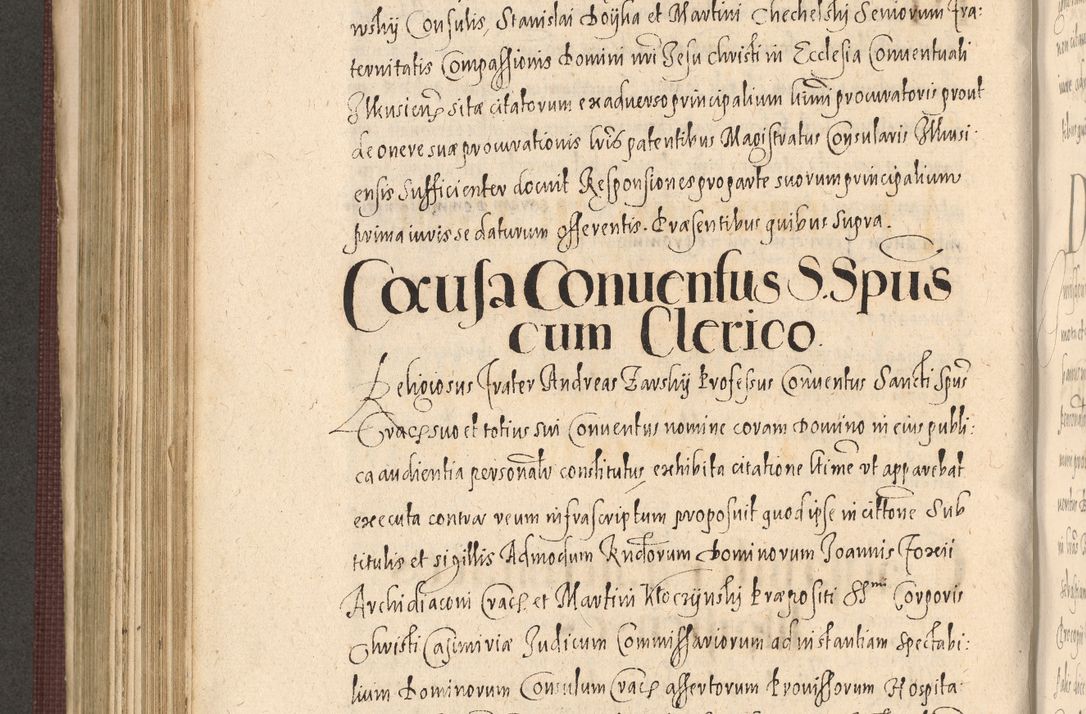 wskij Consulis, Stanislai Boijka et Martini Chechelskij Seniorum Fra:
ternitatis Compassionis Domini nri Jesu Christi in Ecclesia Conventuali
Ilkusien sitæ citatorum ex adverso principalium limi procuratoris prout
de onere suæ procurationis lris patentibus Magistratus Consularis Ilkusi:
ensis sufficienter docuit Responsiones pro parte suorum principalium
prima iuris se daturum offerentis. Præsentibus quibus supra.
Causa Conuentus S. Spus
cum Clerico.
Religiosus Frater Andreas Zarskij Professus Conventus Sancti Spus
Crac suo et totius sui Conventus nomine coram Domino in eius publi:
ca audientia personalr constitutus exhibita citatione ltime ut apparebat
executa contra reum infrascriptum proposuit quod ipse in cittone sub
titulis et sigillis Admodum Rndorum Dominorum Joannis Foxii
Archidiaconi Crac et Martini Kłoczijnskij Præpositi SSmi Corporis
Christi Casimiriæ Judicum Commissariorum ad instantiam spectabi:
lium Dominorum Consulum Crac assertorum Provissorum Hospita: